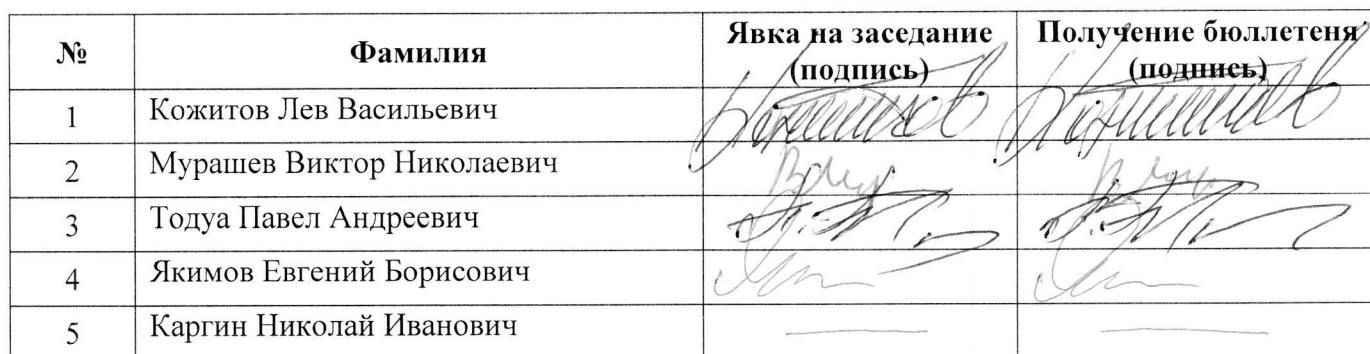 № Фамилия Явка на заседание (подпись) Получение бюллетеня (подпись)
1 Кожитов Лев Васильевич
2 Мурашев Виктор Николаевич
3 Тодуа Павел Андреевич
4 Якимов Евгений Борисович
5 Каргин Николай Иванович